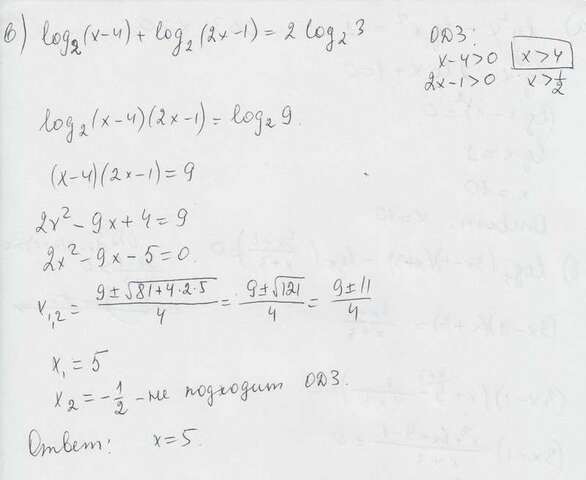 в) log₂(x-4) + log₂(2x-1) = 2 log₂ 3
ОДЗ:
x-4>0 x>4
2x-1>0 x>1/2
log₂(x-4)(2x-1) = log₂ 9.
(x-4)(2x-1) = 9
2x² - 9x + 4 = 9
2x² - 9x - 5 = 0.
x₁,₂ = (9 ± √(81+4·2·5))/4 = (9 ± √121)/4 = (9 ± 11)/4
x₁ = 5
x₂ = -1/2 - не подходит ОДЗ.
Ответ: x = 5.